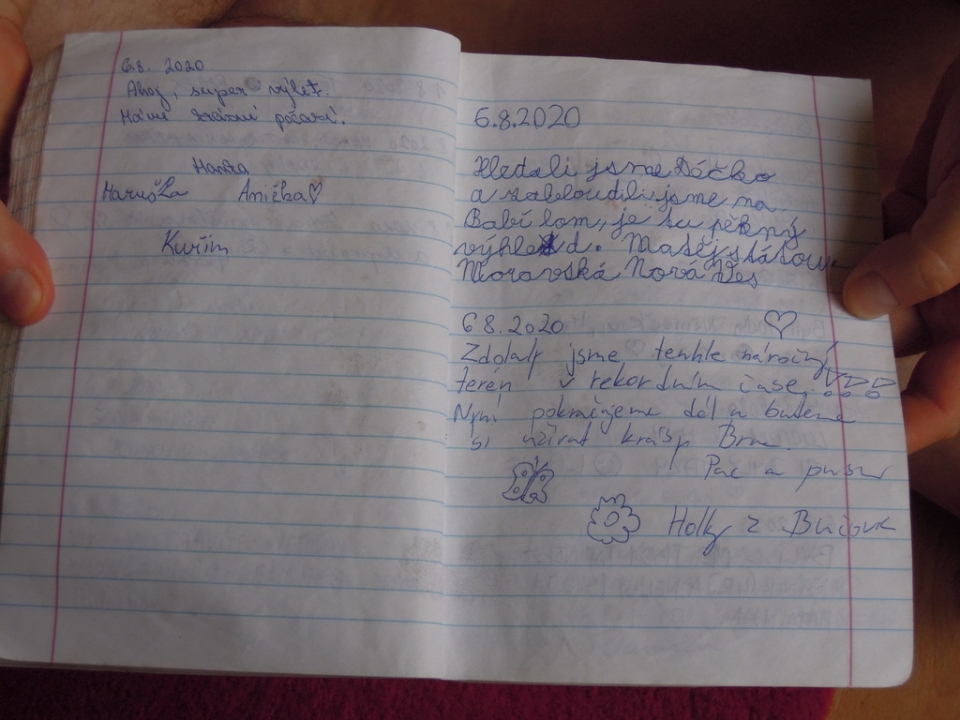 6.8. 2020
Ahoj, super výlet.
Máme krásné počasí.
Hanka
Maruška Anička♡
Kuřim
6.8.2020
Hledali jsme Déčko
a zabloudili jsme na
Babí lom, je su pěkný
výhled. Matěj
Moravská Nová Ves
6 8.2020
Zdolaly jsme tenhle náročný
terén v rekordním čase!!!
Nyní pokračujeme dál a budeme
si užívat krásy Brna.
Pac a pusu
Holky z Bučovic